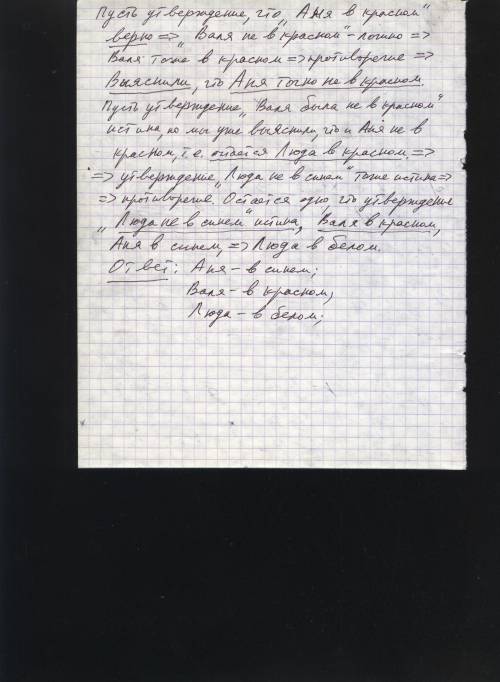 Пусть утверждение, что „Аня в красном"
верно => „Валя не в красном" - ложно =>
Валя тоже в красном => противоречие =>
Выяснили, что Аня точно не в красном.
Пусть утверждение „Валя была не в красном"
истина, но мы уже выяснили, что и Аня не в
красном, т.е. остаётся Люда в красном, =>
=> утверждение „Люда не в синем" тоже истина =>
=> противоречие. Остаётся одно, что утверждение
„Люда не в синем" истина, Валя в красном,
Аня в синем, => Люда в белом.
Ответ: Аня - в синем;
Валя - в красном;
Люда - в белом;